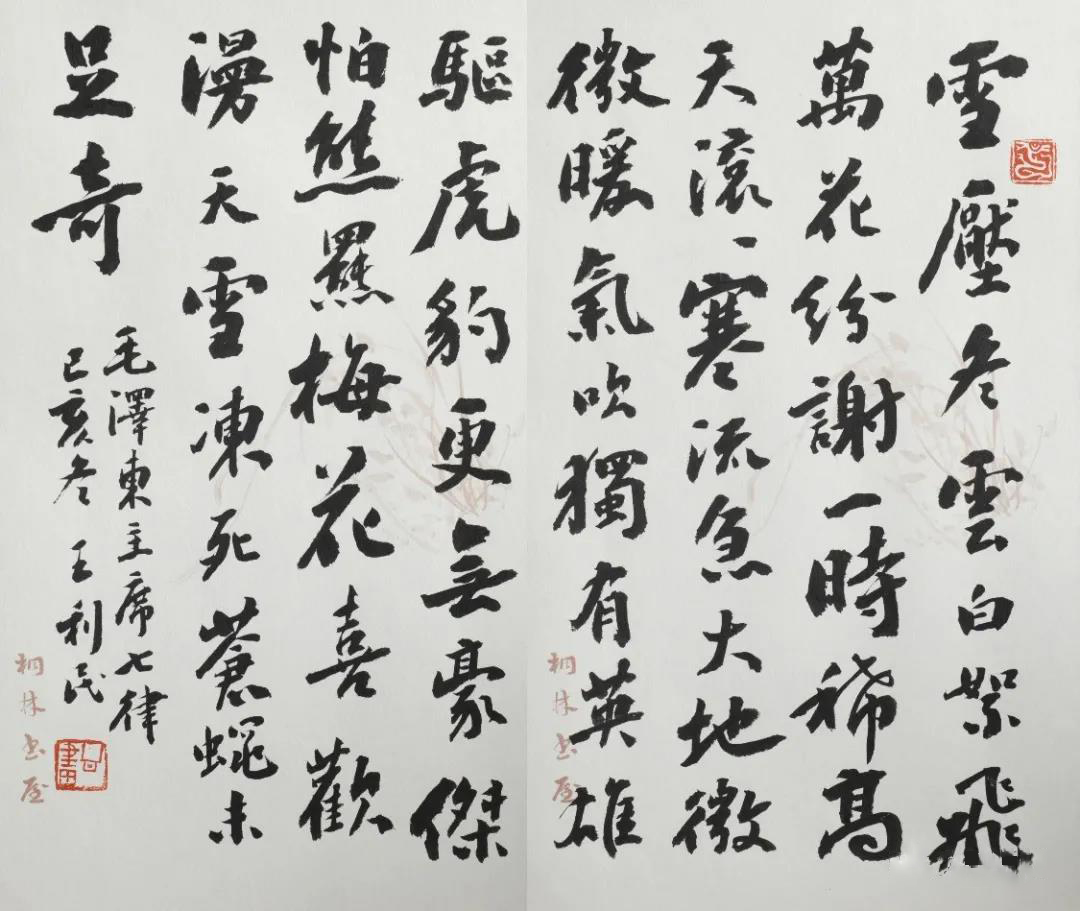 雪壓冬雲白絮飛
萬花紛謝一時稀高
天滾丶寒流急大地微
微暖氣吹獨有英雄
桐林书屋
驅虎豹更無豪傑
怕熊羆梅花喜歡
漫天雪凍死蒼蠅未
足奇
毛澤東主席七律
己亥冬 王利民
桐林书屋